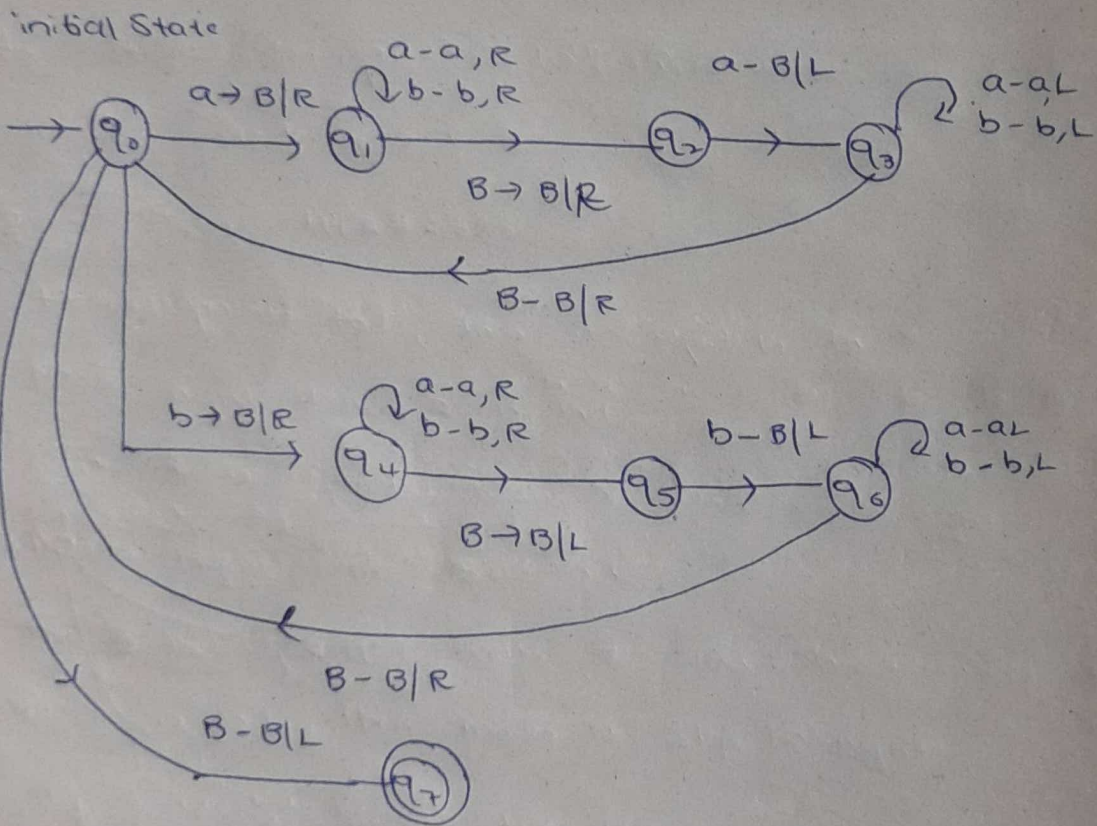 initial State
a-a, R
a → B/R
b-b, R
a-B/L
a-a,L
b-b, L
q0
q1
q2
q3
B → B/R
B-B/R
a-a, R
b → B/R
b-b, R
b-B/L
a-aL
b-b,L
q4
q5
q6
B → B/L
B-B/R
B-B/L
q7